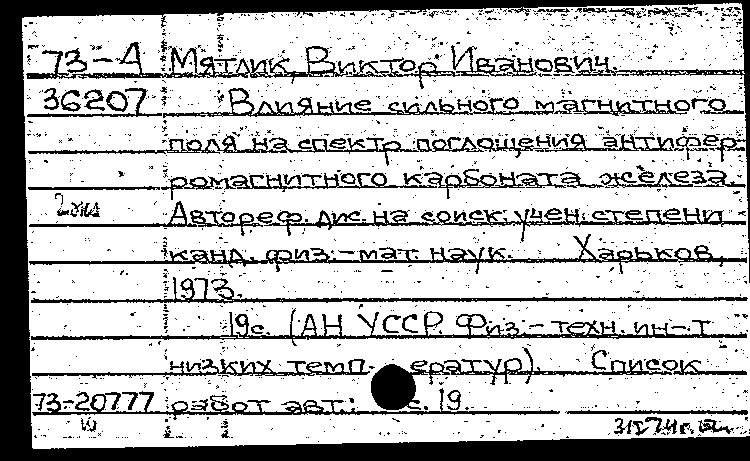 73-А Мятлик, Виктор Иванович.
36207 Влияние сильного магнитного
поля на спектр поглощения антифер-
ромагнитного карбоната железа.
Автореф. дис. на соиск. учен. степени
канд. физ.-мат. наук. Харьков,
1973.
19с. (АН УССР. Физ.-техн. ин-т
низких температур). Список
73-20777 работ авт.: с. 19.